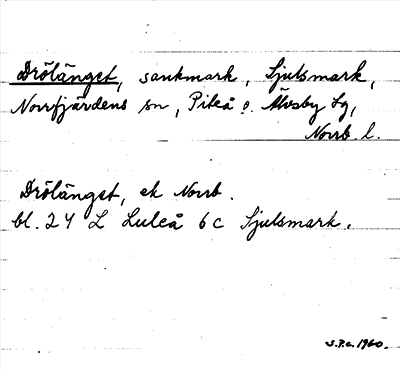 Drölänget, sankmark, Sjulsmark,
Norrfjärdens sn, Piteå o. Älvsby tg,
Norrb. l.
Drölänget, ek Norrb.
bl. 24 L Luleå 6 c Sjulsmark.
S.P.c. 1960.